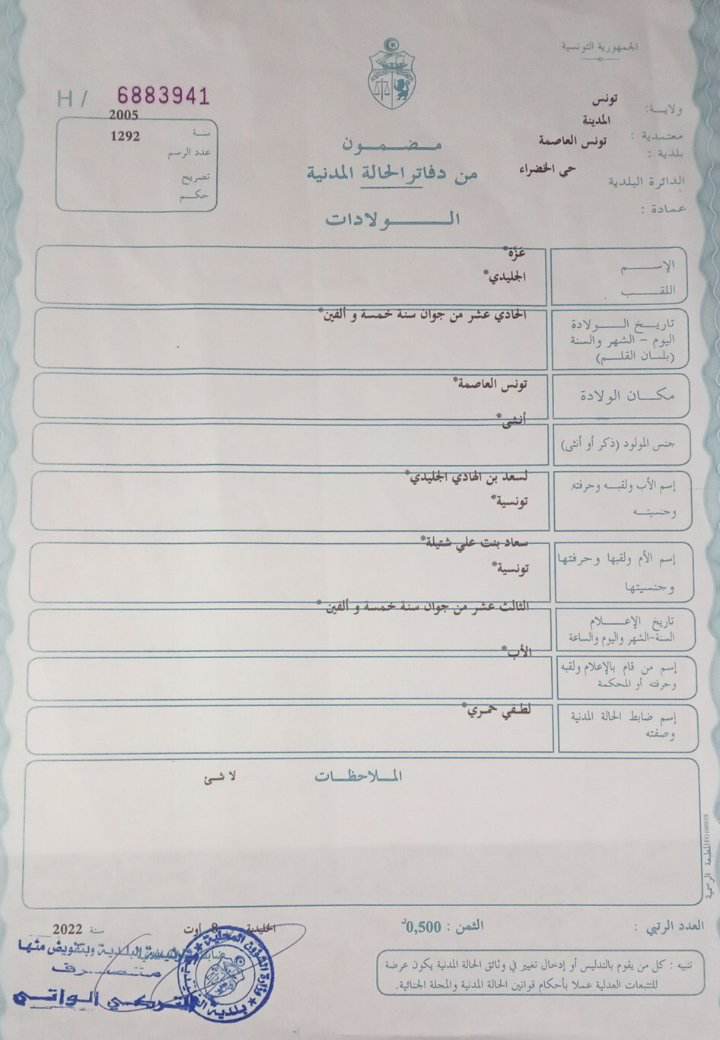 الجمهورية التونسية
H / 6883941
ولاية: تونس
معتمدية : المدينة
بلدية : تونس العاصمة
الدائرة البلدية حي الخضراء
عمادة :
سنة 2005
عدد الرسم 1292
تصريح
حكم
مضمون
من دفاتر الحالة المدنية
الولادات
الإسم عزة*
اللقب الجليدي*
تاريخ الولادة الحادي عشر من جوان سنة خمسة و ألفين*
اليوم – الشهر والسنة
(بلسان القلم)
مكان الولادة تونس العاصمة*
جنس المولود (ذكر أو أنثى) أنثى*
إسم الأب ولقبه وحرفته لسعد بن الهادي الجليدي*
وجنسيته تونسية*
إسم الأم ولقبها وحرفتها سعاد بنت علي شتيلة*
وجنسيتها تونسية*
تاريخ الإعلام الثالث عشر من جوان سنة خمسة و ألفين *
السنة-الشهر واليوم والساعة
إسم من قام بالإعلام ولقبه الأب*
وحرفته أو المحكمة
إسم ضابط الحالة المدنية لطفي حمري*
وصفته
الملاحظات
لا شئ
المطبعة الرسمية
العدد الرتبي :
الثمن : 0,500د
الجليدية 8 أوت سنة 2022
تنبيه : كل من يقوم بالتدليس أو إدخال تغيير في وثائق الحالة المدنية يكون عرضة
للتتبعات العدلية عملا بأحكام قوانين الحالة المدنية والمجلة الجنائية.
البلدية وبتفويض منها
متصرف
التركي الواتي
وزارة الشؤون المحلية
بلدية